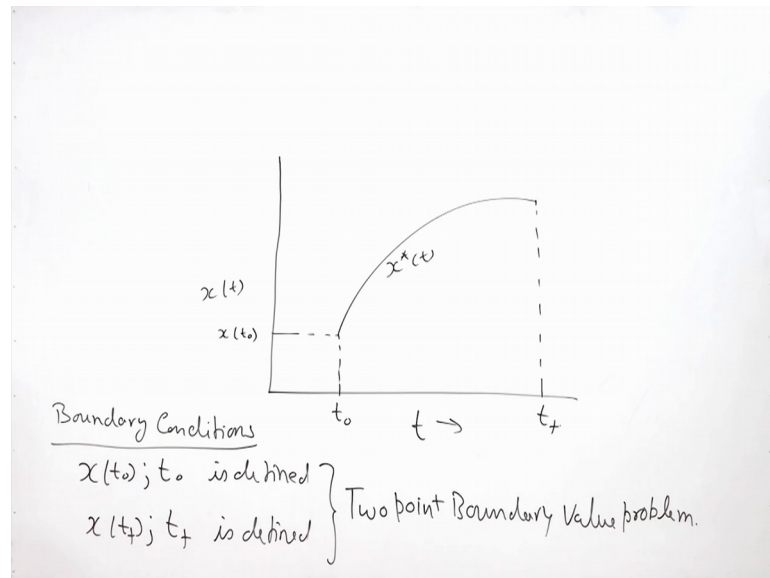 x*(t)
x(t)
x(t₀)
t₀ t → t_f
Boundary Conditions
x(t₀); t₀ is defined
x(t_f); t_f is defined
Two point Boundary Value problem.